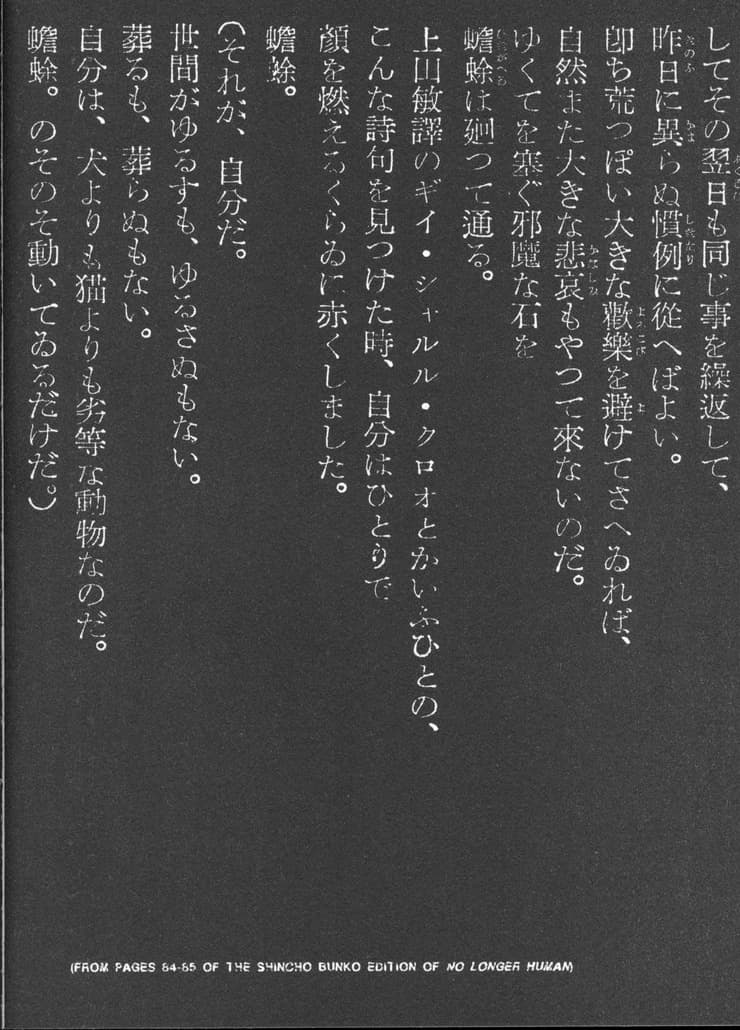 してその翌日も同じ事を繰返して、
昨日に異らぬ慣例に從へばよい。
卽ち荒つぽい大きな歡樂を避けてさへゐれば、
自然また大きな悲哀もやつて來ないのだ。
ゆくてを塞ぐ邪魔な石を
蟾蜍は廻つて通る。
上田敏譯のギイ・シャルル・クロオとかいふひとの、
こんな詩句を見つけた時、自分はひとりで
顏を燃えるくらゐに赤くしました。
蟾蜍。
(それが、自分だ。
世間がゆるすも、ゆるさぬもない。
葬るも、葬らぬもない。
自分は、犬よりも猫よりも劣等な動物なのだ。
蟾蜍。のそのそ動いてゐるだけだ。)
(FROM PAGES 84-85 OF THE SHINCHO BUNKO EDITION OF NO LONGER HUMAN)